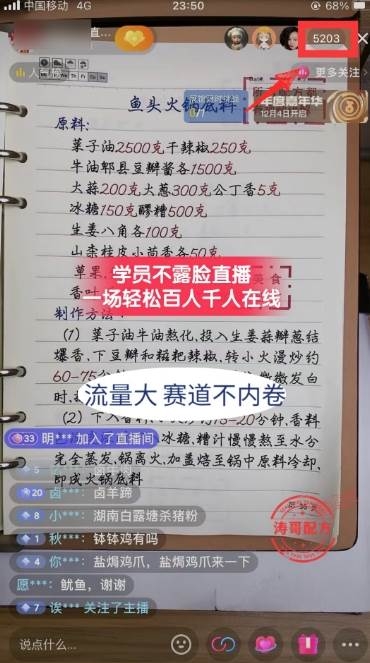 中国移动 4G
23:50
直...
5203
人气榜
更多关注
年度嘉年华
12月4日开启
鱼头火锅底料
原料:
菜子油2500克干辣椒250克
牛油郫县豆瓣酱各1500克
大蒜200克大葱300克公丁香5克
冰糖150克醪糟500克
生姜八角各100克
山柰桂皮小茴香各50克
草果
香叶
美食
学员不露脸直播
一场轻松百人千人在线
制作方法:
(1) 菜子油牛油熬化,投入生姜蒜瓣葱结
爆香,下豆瓣和糍粑辣椒,转小火漫炒约
60-75分
微微发白
时,
流量大 赛道不内卷
(2) 下入香料
15-20分钟,香料
33 明*** 加入了直播间
冰糖,糟汁慢慢熬至水分
5 卤
20 卤*** : 卤羊蹄
完全蒸发,锅离火,加盖焐至锅中原料冷却,
即成火锅底料
8 小*** : 湖南白露塘杀猪粉
1 秋*** : 钵钵鸡有吗
4 你*** : 盐焗鸡爪,盐焗鸡爪来一下
愿*** : 鱿鱼,谢谢
7 诶*** 关注了主播
涛哥配方
说点什么...